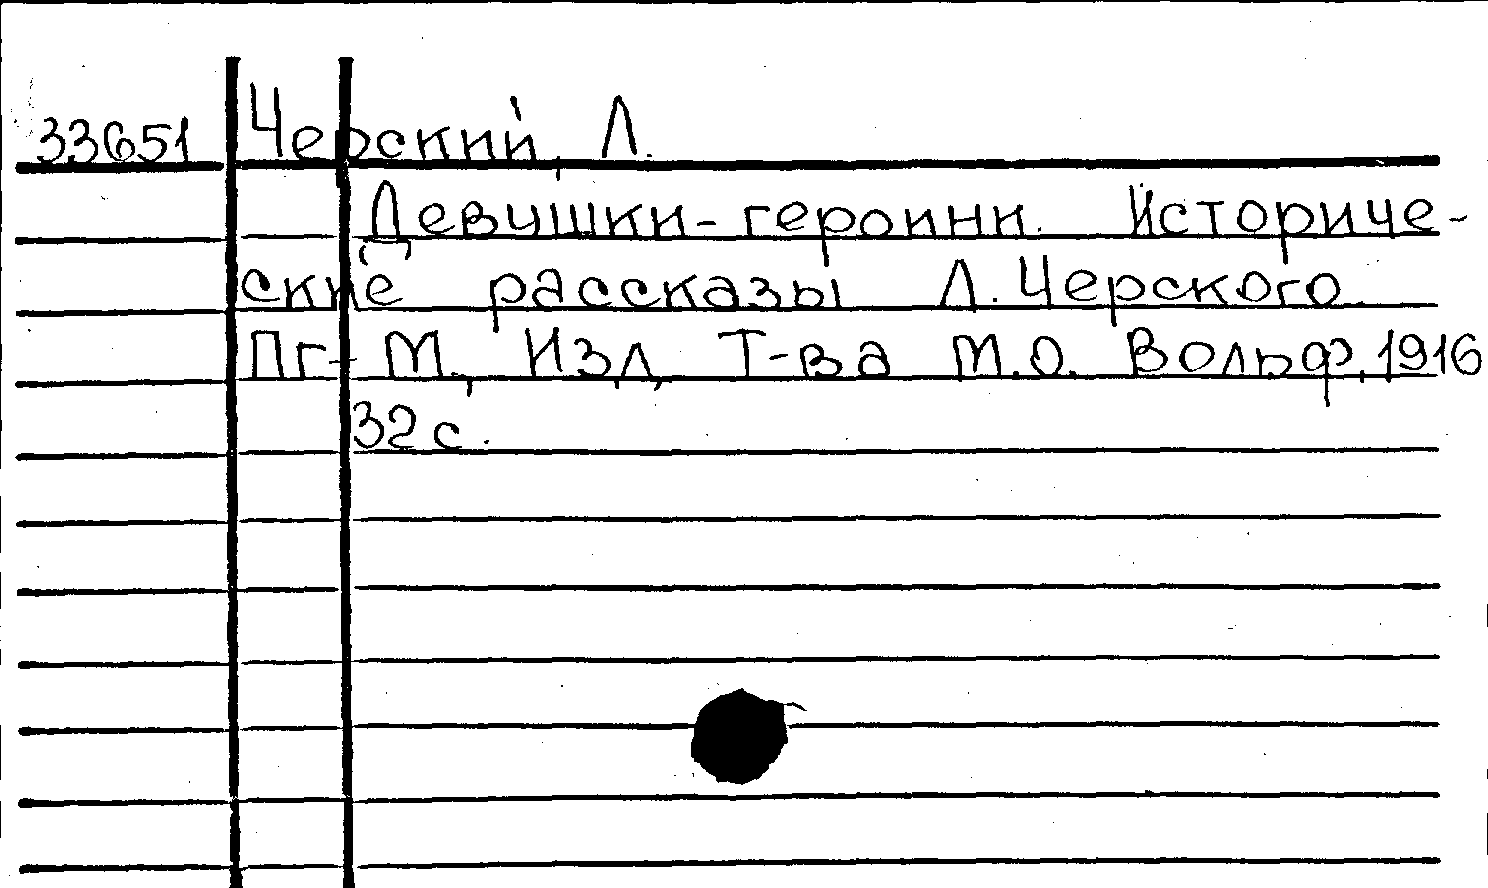 33651 Черский, Л.
Девушки-героини. Историче-
ские рассказы Л. Черского.
Пг-М., Изд, Т-ва М.О. Вольф, 1916
32 с.